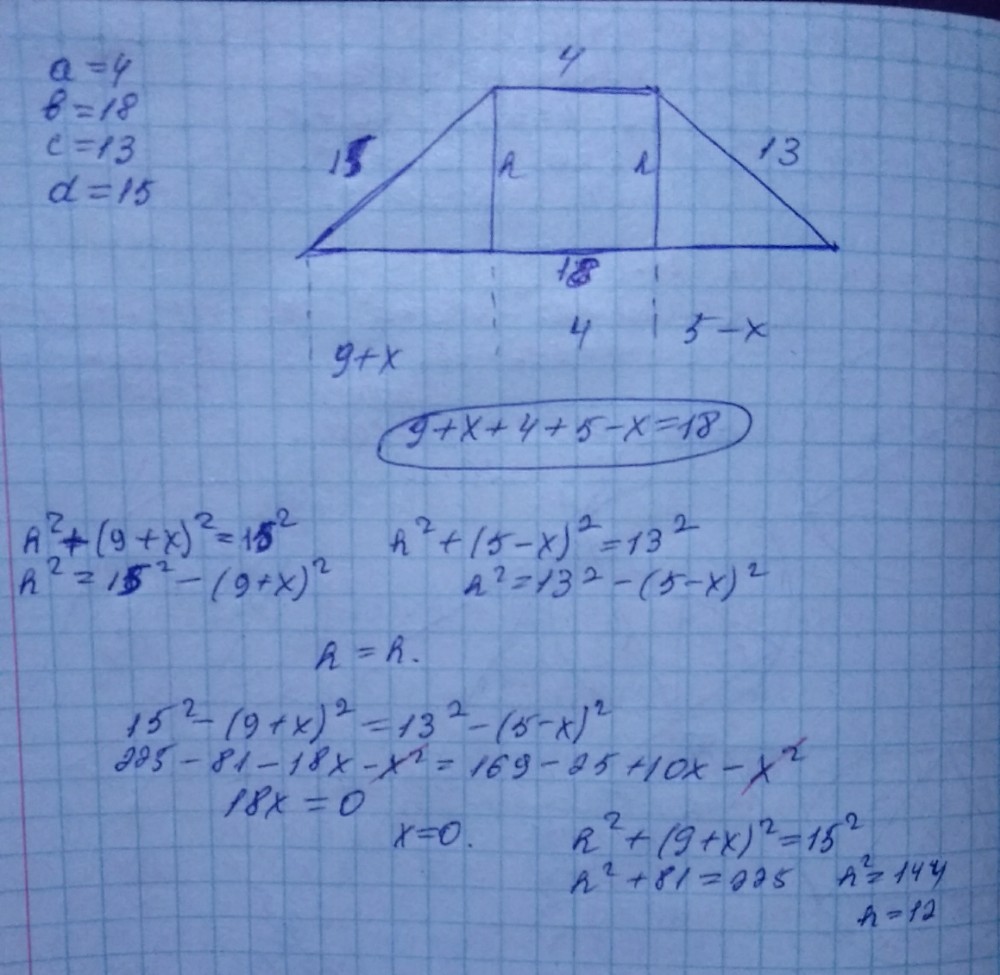 a = 4
b = 18
c = 13
d = 15
4
15
h
h
13
18
4
5 - x
9 + x
9 + x + 4 + 5 - x = 18
h² + (9 + x)² = 15²
h² + (5 - x)² = 13²
h² = 15² - (9 + x)²
h² = 13² - (5 - x)²
h = h.
15² - (9 + x)² = 13² - (5 - x)²
225 - 81 - 18x - x² = 169 - 25 + 10x - x²
18x = 0
x = 0.
h² + (9 + x)² = 15²
h² + 81 = 225
h² = 144
h = 12